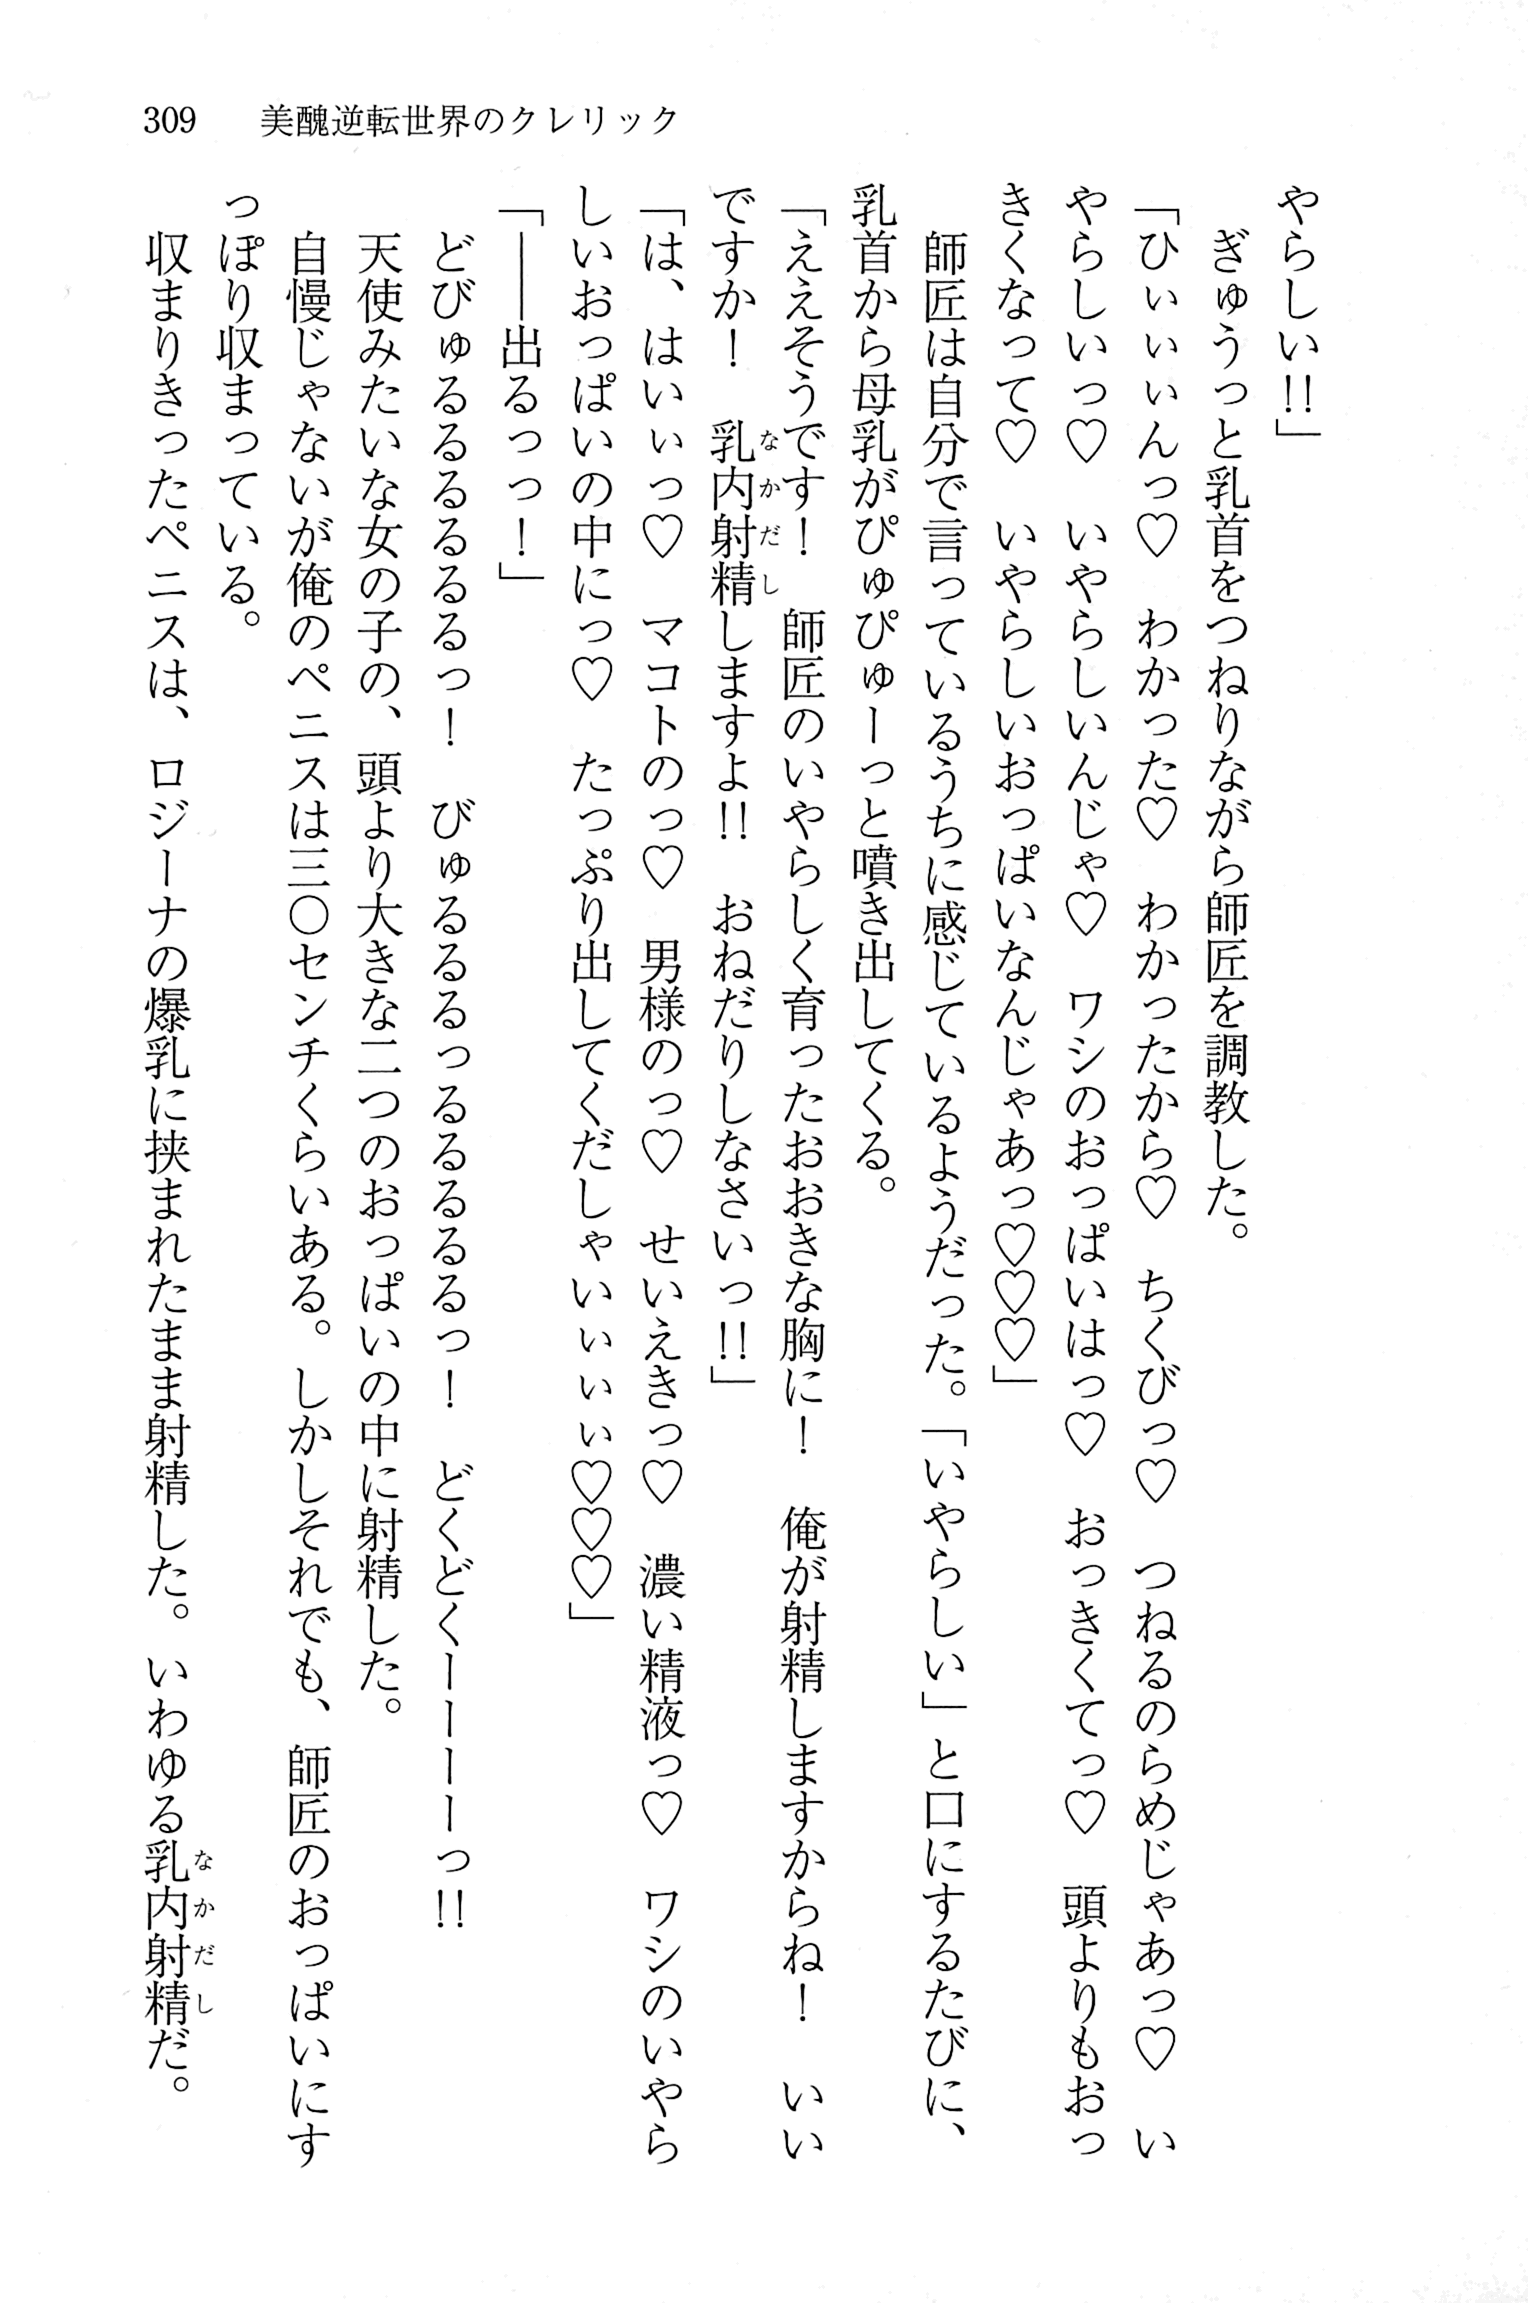 309 美醜逆転世界のクレリック
やらしい!!」
　ぎゅうっと乳首をつねりながら師匠を調教した。
「ひぃぃぃんっ♡　わかった♡　わかったから♡　ちくびっ♡　つねるのらめじゃあっ♡　い
やらしいっ♡　いやらしいんじゃ♡　ワシのおっぱいはっ♡　おっきくてっ♡　頭よりもおっ
きくなって♡　いやらしいおっぱいなんじゃあっ♡♡♡」
　師匠は自分で言っているうちに感じているようだった。「いやらしい」と口にするたびに、
乳首から母乳がぴゅぴゅーっと噴き出してくる。
「ええそうです！　師匠のいやらしく育ったおおきな胸に！　俺が射精しますからね！　いい
ですか！　乳内射精しますよ!!　おねだりしなさいっ!!」
なかだし
「は、はいぃっ♡　マコトのっ♡　男様のっ♡　せいえきっ♡　濃い精液っ♡　ワシのいやら
しいおっぱいの中にっ♡　たっぷり出してくだしゃいぃぃぃ♡♡♡」
「――出るっっ！」
　どびゅるるるるるるっ！　びゅるるるっるるるるるっ！　どくどくーーーーっ!!
　天使みたいな女の子の、頭より大きな二つのおっぱいの中に射精した。
　自慢じゃないが俺のペニスは三〇センチくらいある。しかしそれでも、師匠のおっぱいにす
っぽり収まっている。
　収まりきったペニスは、ロジーナの爆乳に挟まれたまま射精した。いわゆる乳内射精だ。
なかだし